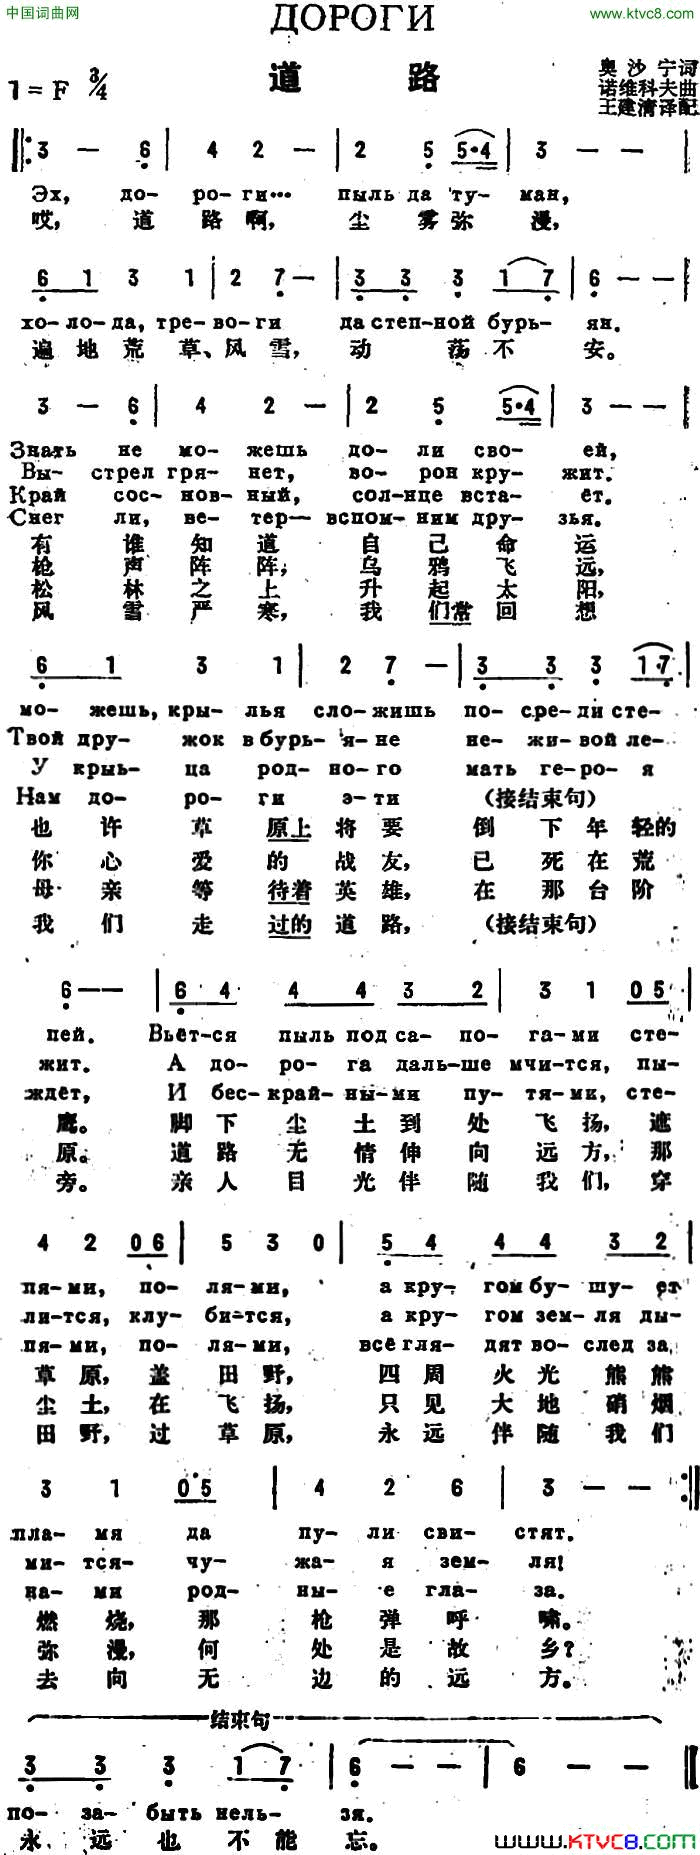 中国词曲网
www.ktvc8.com
ДОРОГИ
道 路
1=F 3/4
奥沙宁词
诺维科夫曲
王建清译配
3 — 6 | 4 2 — | 2 5 5·4 | 3 — — |
Эх, до- ро- ги··· пыль да ту- ман,
哎, 道 路 啊, 尘 雾 弥 漫,
6 1 3 1 | 2 7 — | 3 3 3 1 7 | 6 — — |
хо-ло-да, тре-во-ги да степ-ной бурь-ян.
遍 地 荒 草、风 雪, 动 荡 不 安。
3 — 6 | 4 2 — | 2 5 5·4 | 3 — — |
Знать не мо- жешь до- ли сво- ей,
Вы- стрел гря- нет, во- рон кру- жит.
Край сос- нов- ный, сол-нце вста- ёт.
Снег ли, ве- тер— вспом-ним дру- зья.
有 谁 知 道 自 己 命 运
枪 声 阵 阵, 乌 鸦 飞 远,
松 林 之 上 升 起 太 阳,
风 雪 严 寒, 我 们常 回 想
6 1 3 1 | 2 7 — | 3 3 3 1·7 |
мо- жешь, кры- лья сло-жишь по- сре-ди сте-
Твой дру- жок в бурь- я-не не- жи-вой ле-
У крыь- ца род- но-го мать ге-ро-я
Нам до- ро- ги э-ти (接结束句)
也 许 草 原上 将 要 倒 下 年 轻的
你 心 爱 的 战 友, 已 死 在 荒
母 亲 等 待着 英 雄, 在 那 台 阶
我 们 走 过的 道 路, (接结束句)
6 — — | 6 4 4 4 3 2 | 3 1 0 5 |
пей. Вьёт-ся пыль под са- по- га-ми сте-
жит. А до- ро- га даль-ше мчит-ся, пы-
ждёт, И бес- край-ны-ми пу- тя-ми, сте-
鹰。 脚 下 尘 土 到 处 飞 扬, 遮
原。 道 路 无 情 伸 向 远 方, 那
旁。 亲 人 目 光 伴 随 我 们, 穿
4 2 0 6 | 5 3 0 | 5 4 4 4 3 2 |
пя-ми, по- ля-ми, а кру- гом бу- шу-ет
лит-ся, клу- бит-ся, а кру- гом зем- ля ды-
пя-ми, по- ля-ми, всё гля- дят во- след за
草 原, 盖 田 野, 四 周 火 光 熊 熊
尘 土, 在 飞 扬, 只 见 大 地 硝 烟
田 野, 过 草 原, 永 远 伴 随 我 们
3 1 0 5 | 4 2 6 | 3 — — :|
пла- мя да пу- ли сви- стят.
ми- тся- чу- жа- я зем- ля!
на- ми род- ны- е гла- за.
燃 烧, 那 枪 弹 呼 啸。
弥 漫, 何 处 是 故 乡?
去 向 无 边 的 远 方。
结束句
3 3 3 1 7 | 6 — — | 6 — — ‖
по- за- быть нель- зя.
永 远 也 不 能 忘。
www.KTVC8.com